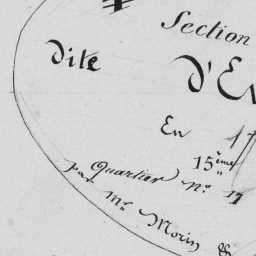 Section
dite
D'E
En
15.ème
Quartier n.°
par
Mr Morin &